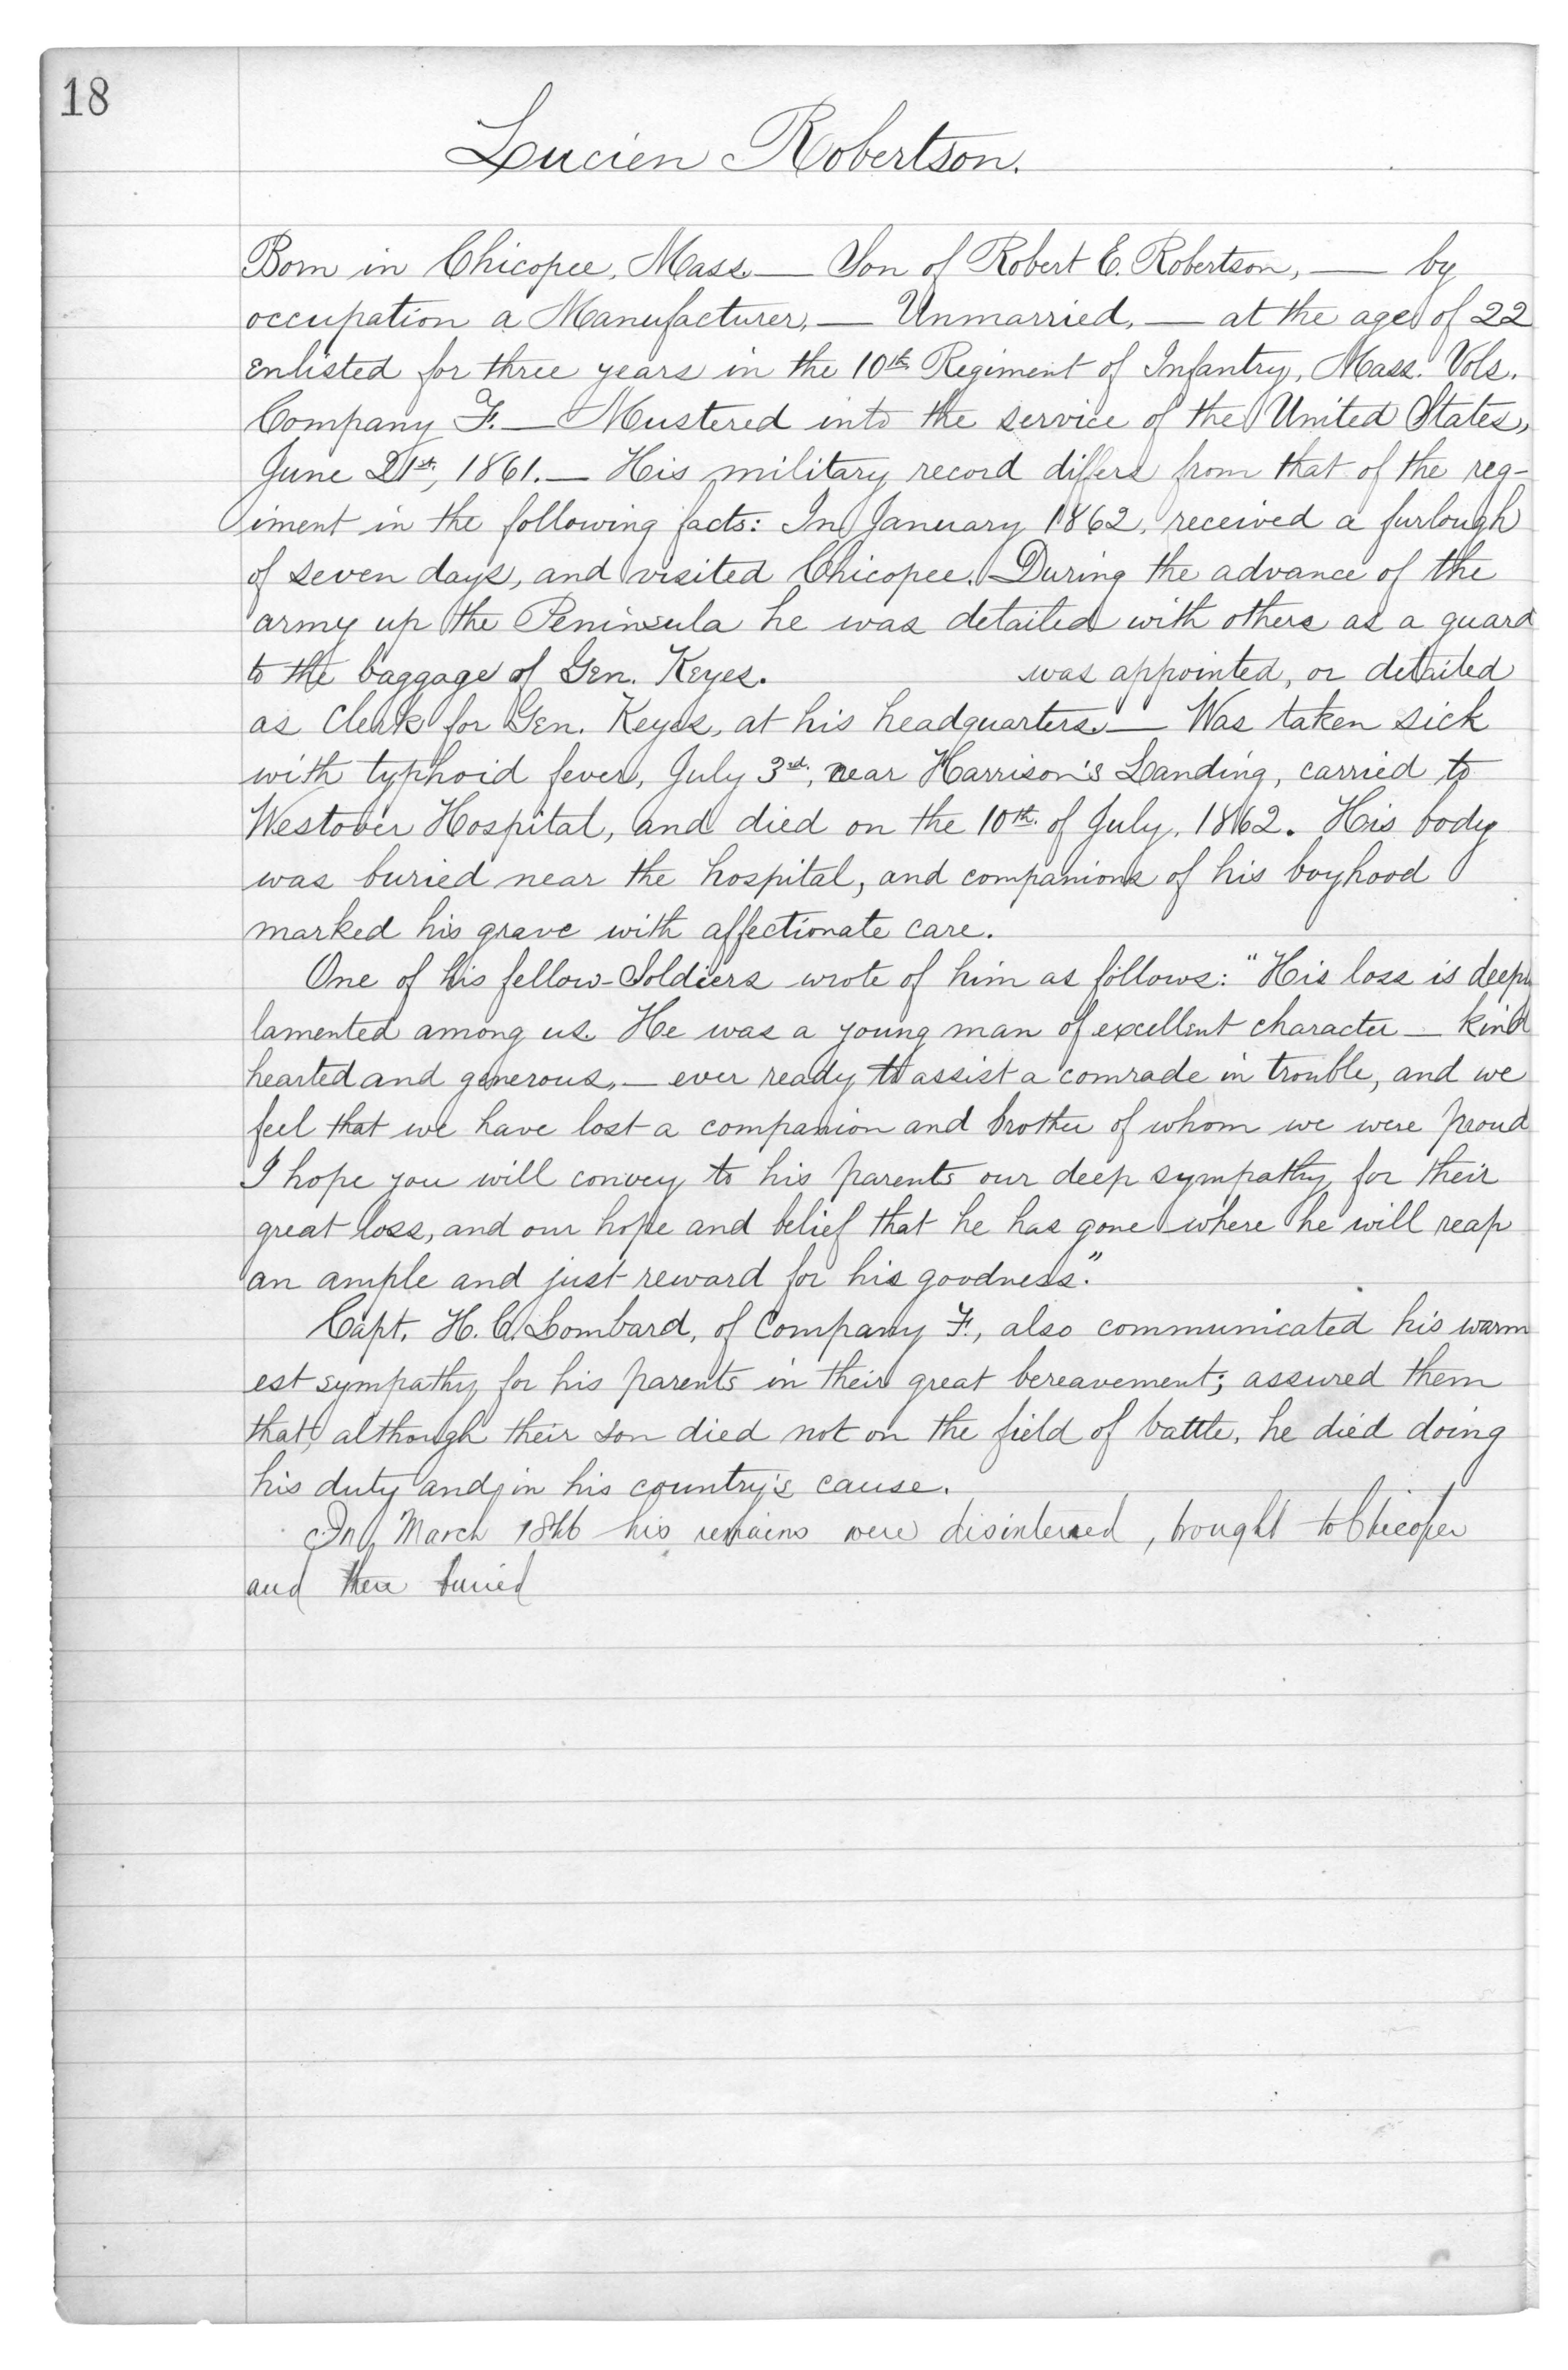 18
Lucien Robertson.
Born in Chicopee, Mass. — Son of Robert E. Robertson, — by
occupation a Manufacturer, — Unmarried, — at the age of 22
enlisted for three years in the 10th Regiment of Infantry, Mass. Vols.
Company F. — Mustered into the service of the United States,
June 21st, 1861. — His military record differs from that of the reg-
iment in the following facts: In January 1862, received a furlough
of seven days, and visited Chicopee. During the advance of the
army up the Peninsula he was detailed with others as a guard
to the baggage of Gen. Keyes. was appointed, or detailed
as Clerk for Gen. Keyes, at his headquarters. — Was taken sick
with typhoid fever, July 3rd, near Harrison's Landing, carried to
Westover Hospital, and died on the 10th of July, 1862. His body
was buried near the hospital, and companions of his boyhood
marked his grave with affectionate care.
One of his fellow-Soldiers wrote of him as follows: "His loss is deeply
lamented among us. He was a young man of excellent character — kind
hearted and generous, — ever ready to assist a comrade in trouble, and we
feel that we have lost a companion and brother of whom we were proud
I hope you will convey to his parents our deep sympathy for their
great loss, and our hope and belief that he has gone where he will reap
an ample and just reward for his goodness."
Capt. H. C. Lombard, of Company F., also communicated his warm
est sympathy for his parents in their great bereavement; assured them
that, although their son died not on the field of battle, he died doing
his duty and in his country's cause.
In March 1866 his remains were disinterred, brought to Chicopee
and there buried